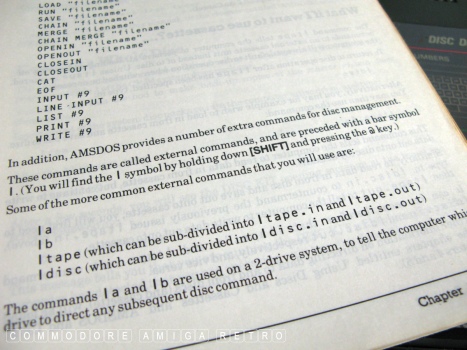 LOAD "filename"
RUN "filename"
SAVE "filename"
CHAIN "filename"
MERGE "filename"
CHAIN MERGE "filename"
OPENIN "filename"
OPENOUT "filename"
CLOSEIN
CLOSEOUT
CAT
EOF
INPUT #9
LINE INPUT #9
LIST #9
PRINT #9
WRITE #9
In addition, AMSDOS provides a number of extra commands for disc management.
These commands are called external commands, and are preceded with a bar symbol
|. (You will find the | symbol by holding down [SHIFT] and pressing the @ key.)
Some of the more common external commands that you will use are:
|a
|b
|tape (which can be sub-divided into |tape.in and |tape.out)
|disc (which can be sub-divided into |disc.in and |disc.out)
The commands |a and |b are used on a 2-drive system, to tell the computer whi
drive to direct any subsequent disc command.
Chapter
COMMODORE AMIGA RETRO
DISC D